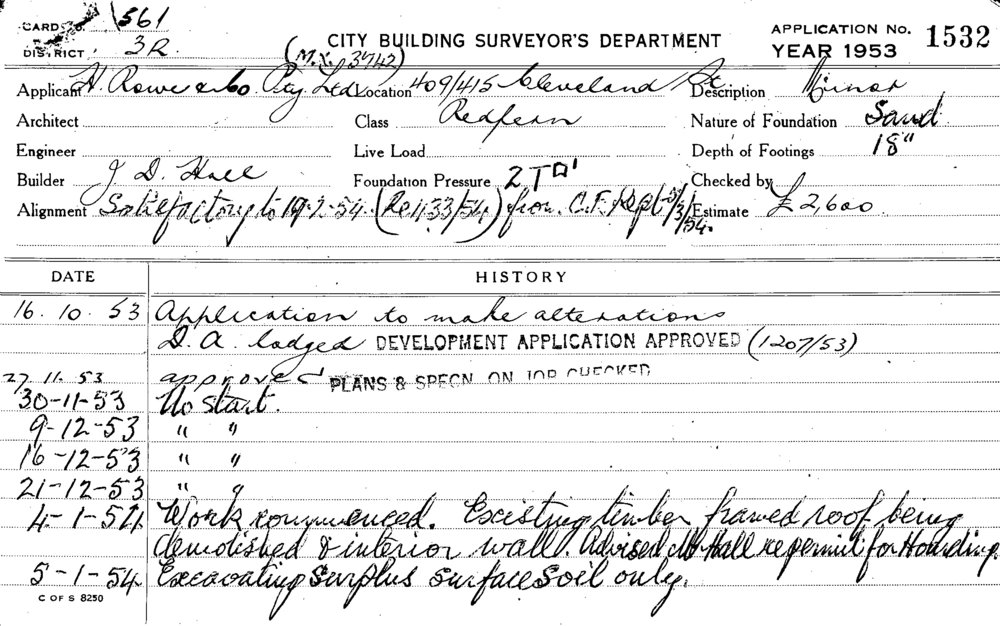 CARD No. 561
DISTRICT 3R
CITY BUILDING SURVEYOR'S DEPARTMENT
APPLICATION No. 1532
YEAR 1953
(M.X. 3742)
Applicant H. Rowe & Co. Pty Ltd Location 409/415 Cleveland St. Description Minor
Architect Class Redfern Nature of Foundation Sand
Engineer Live Load Depth of Footings 18"
Builder J. D. Hall Foundation Pressure 2 T□' Checked by
Alignment Satisfactory to 19-2-54 (Re 1133/54) from C.F. Rept /3/54. Estimate £2,600
DATE HISTORY
16. 10. 53 Application to make alterations
D. A. lodged DEVELOPMENT APPLICATION APPROVED (1207/53)
27. 11. 53 approved PLANS & SPECN. ON JOB CHECKED
30-11-53 No start.
9-12-53 " "
16-12-53 " "
21-12-53 " "
4-1-54 Work commenced. Existing timber framed roof being
demolished & interior wall. Advised Mr Hall re permit for Hoarding.
5-1-54 Excavating surplus surface soil only.
C OF S 8250